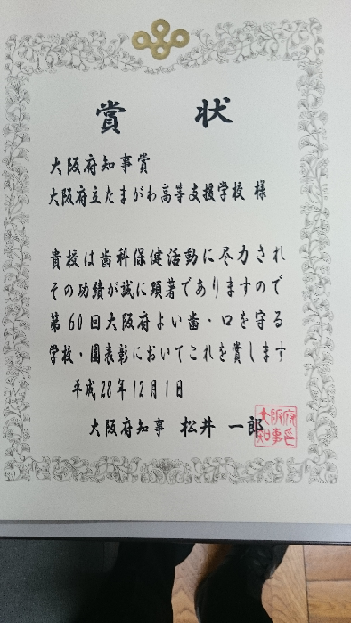 賞状
大阪府知事賞
大阪府立たまがわ高等支援学校 様
貴校は歯科保健活動に尽力され
その功績が誠に顕著でありますので
第60回大阪府よい歯・口を守る
学校・園表彰においてこれを賞します
平成28年12月1日
大阪府知事 松井 一郎